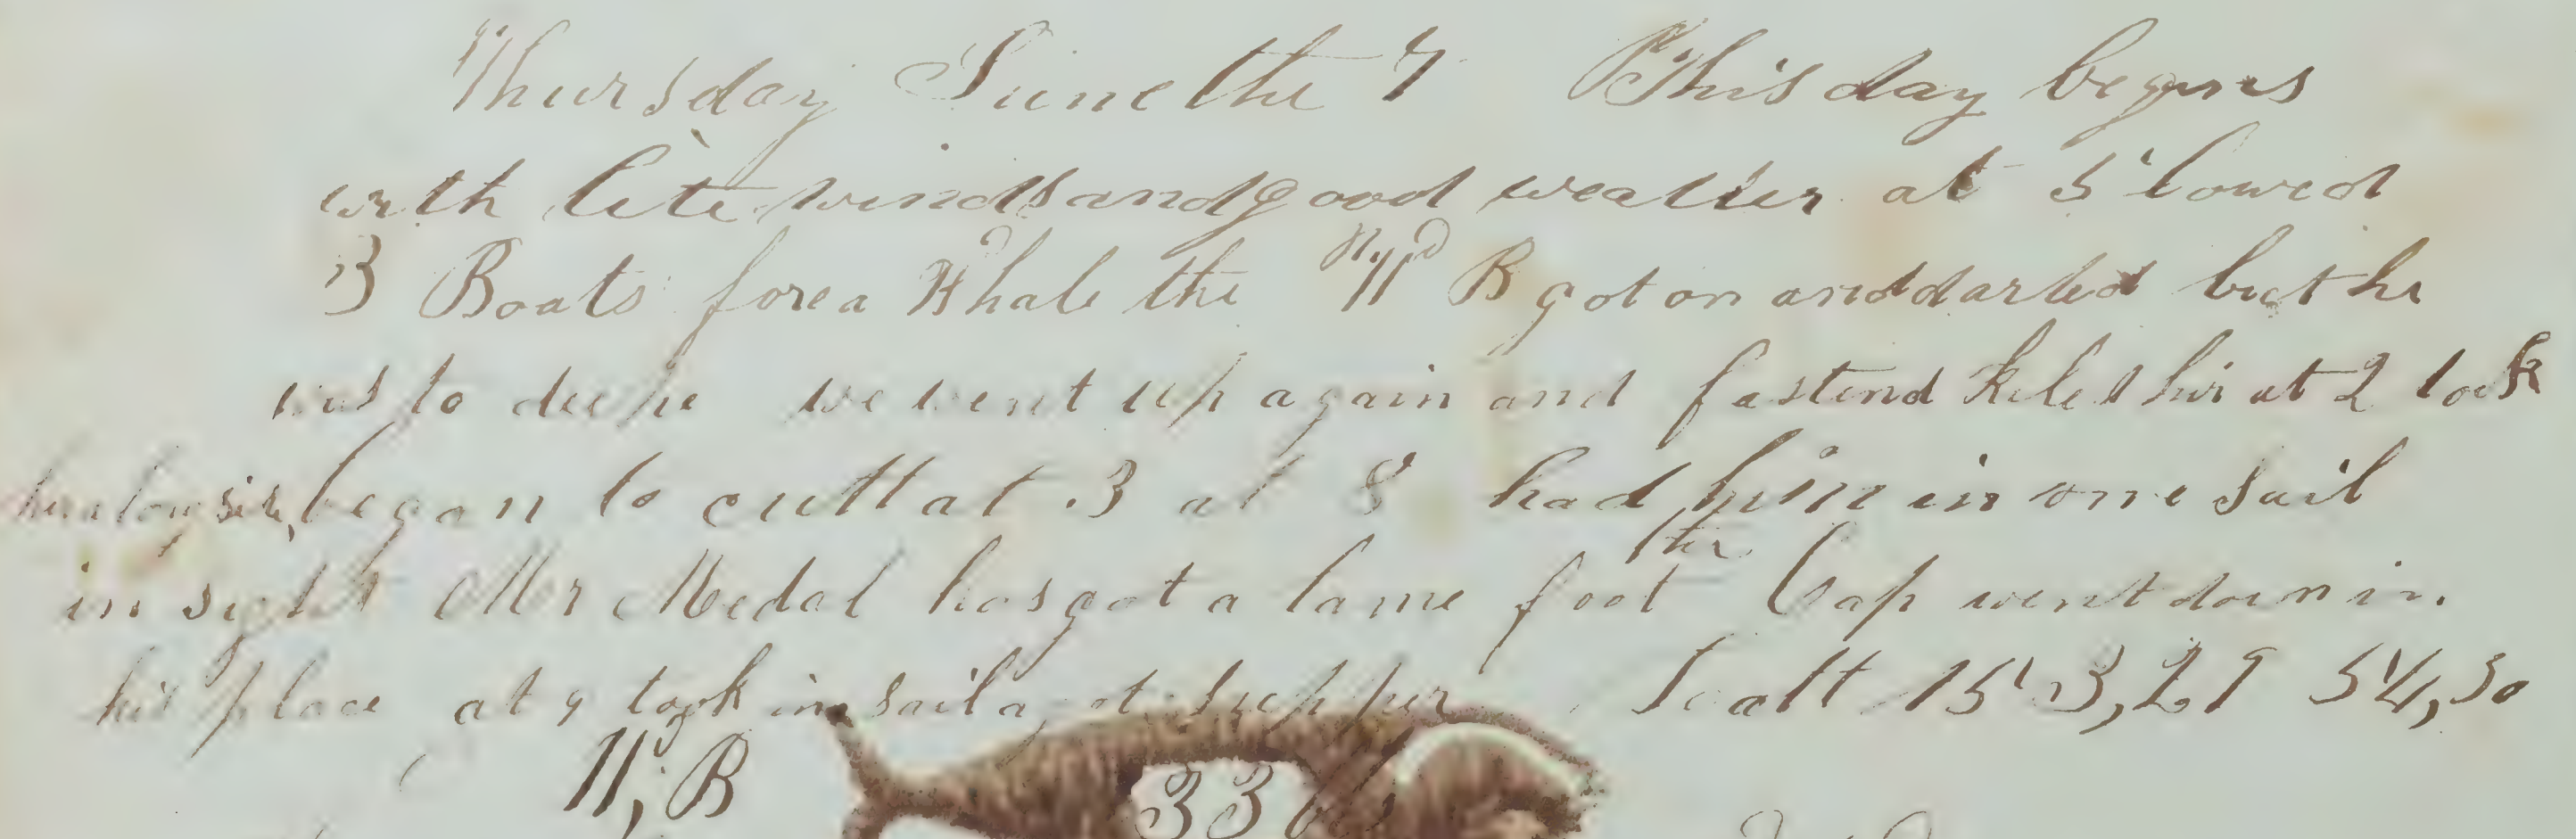 Thursday June the 7 This day begins
with lite winds and good weather at 5 lowed
3 Boats for a Whale the 11 B got on and darted but he
was to deepe we went up again and fastend kiled him at 2 took
him along side, began to cutt at 3 at 8 had him in one sail
in sight Mr Medal has got a lame foot the Cap went down in
his place at 9 took in sail at supper Latt 153,29 54,30
11, B 33